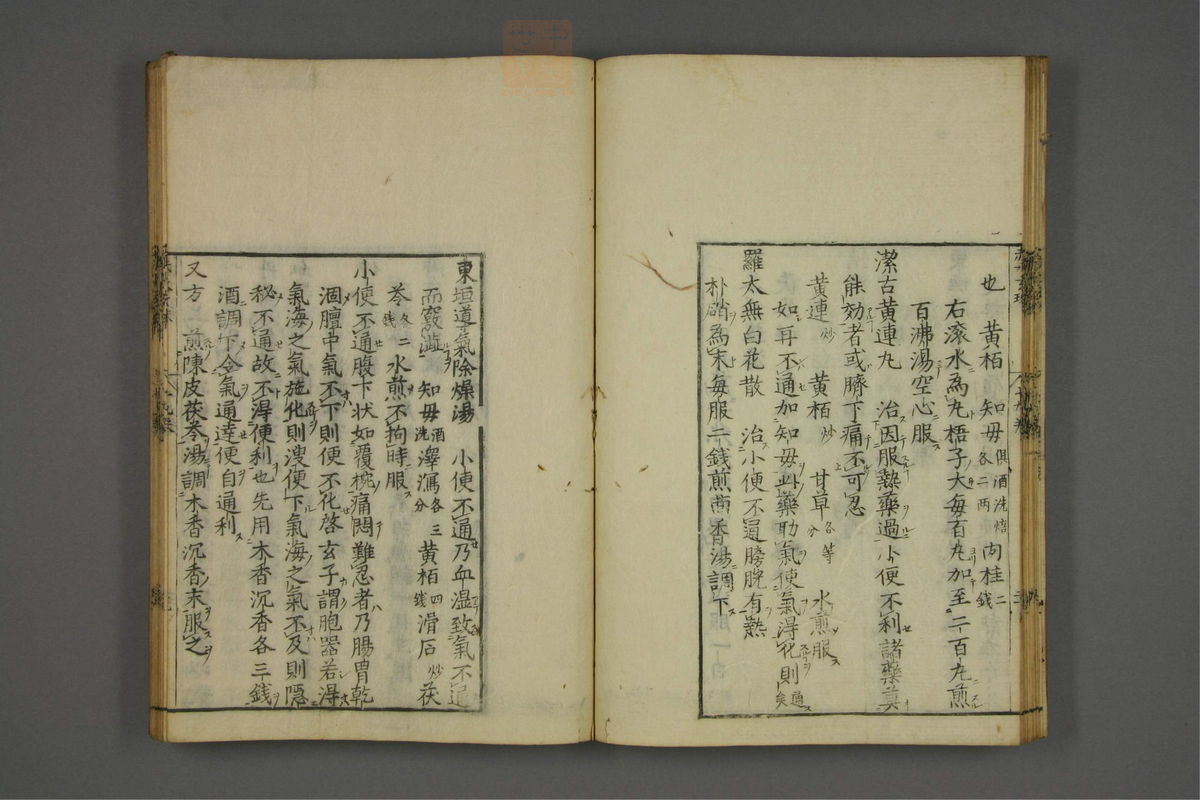 也 黄栢 知毋 酒洗焙俱各二兩 肉桂 二錢
右滚水為丸梧子大毎百丸加至二百丸煎
百沸湯空心服
潔古黄連丸 治因服熱藥過小便不利諸藥莫
能効者或臍下痛不可忍
黄連 炒 黄栢 炒 甘草 各等分 水煎服
如再不通加知毋此藥助氣使氣得化則通矣
羅太無白花散 治小便不通膀胱有熱
朴硝為末毎服二錢煎茴香湯調下
東垣導氣除燥湯 小便不通乃血濕致氣不通
而竅澁 知毋 酒洗 澤瀉 各三分 黄栢 四錢 滑石 炒 茯
苓 各二錢 水煎不拘時服
小便不通腹下状如覆椀痛悶難忍者乃腸胃乾
涸膻中氣不下則便不化啓玄子謂胞器若得
氣海之氣施化則溲便下氣海之氣不及則隠
秘不通故不得便利也先用木香沉香各三錢
酒調下令氣通達便自通利
又方 煎陳皮茯苓湯調木香沉香末服之